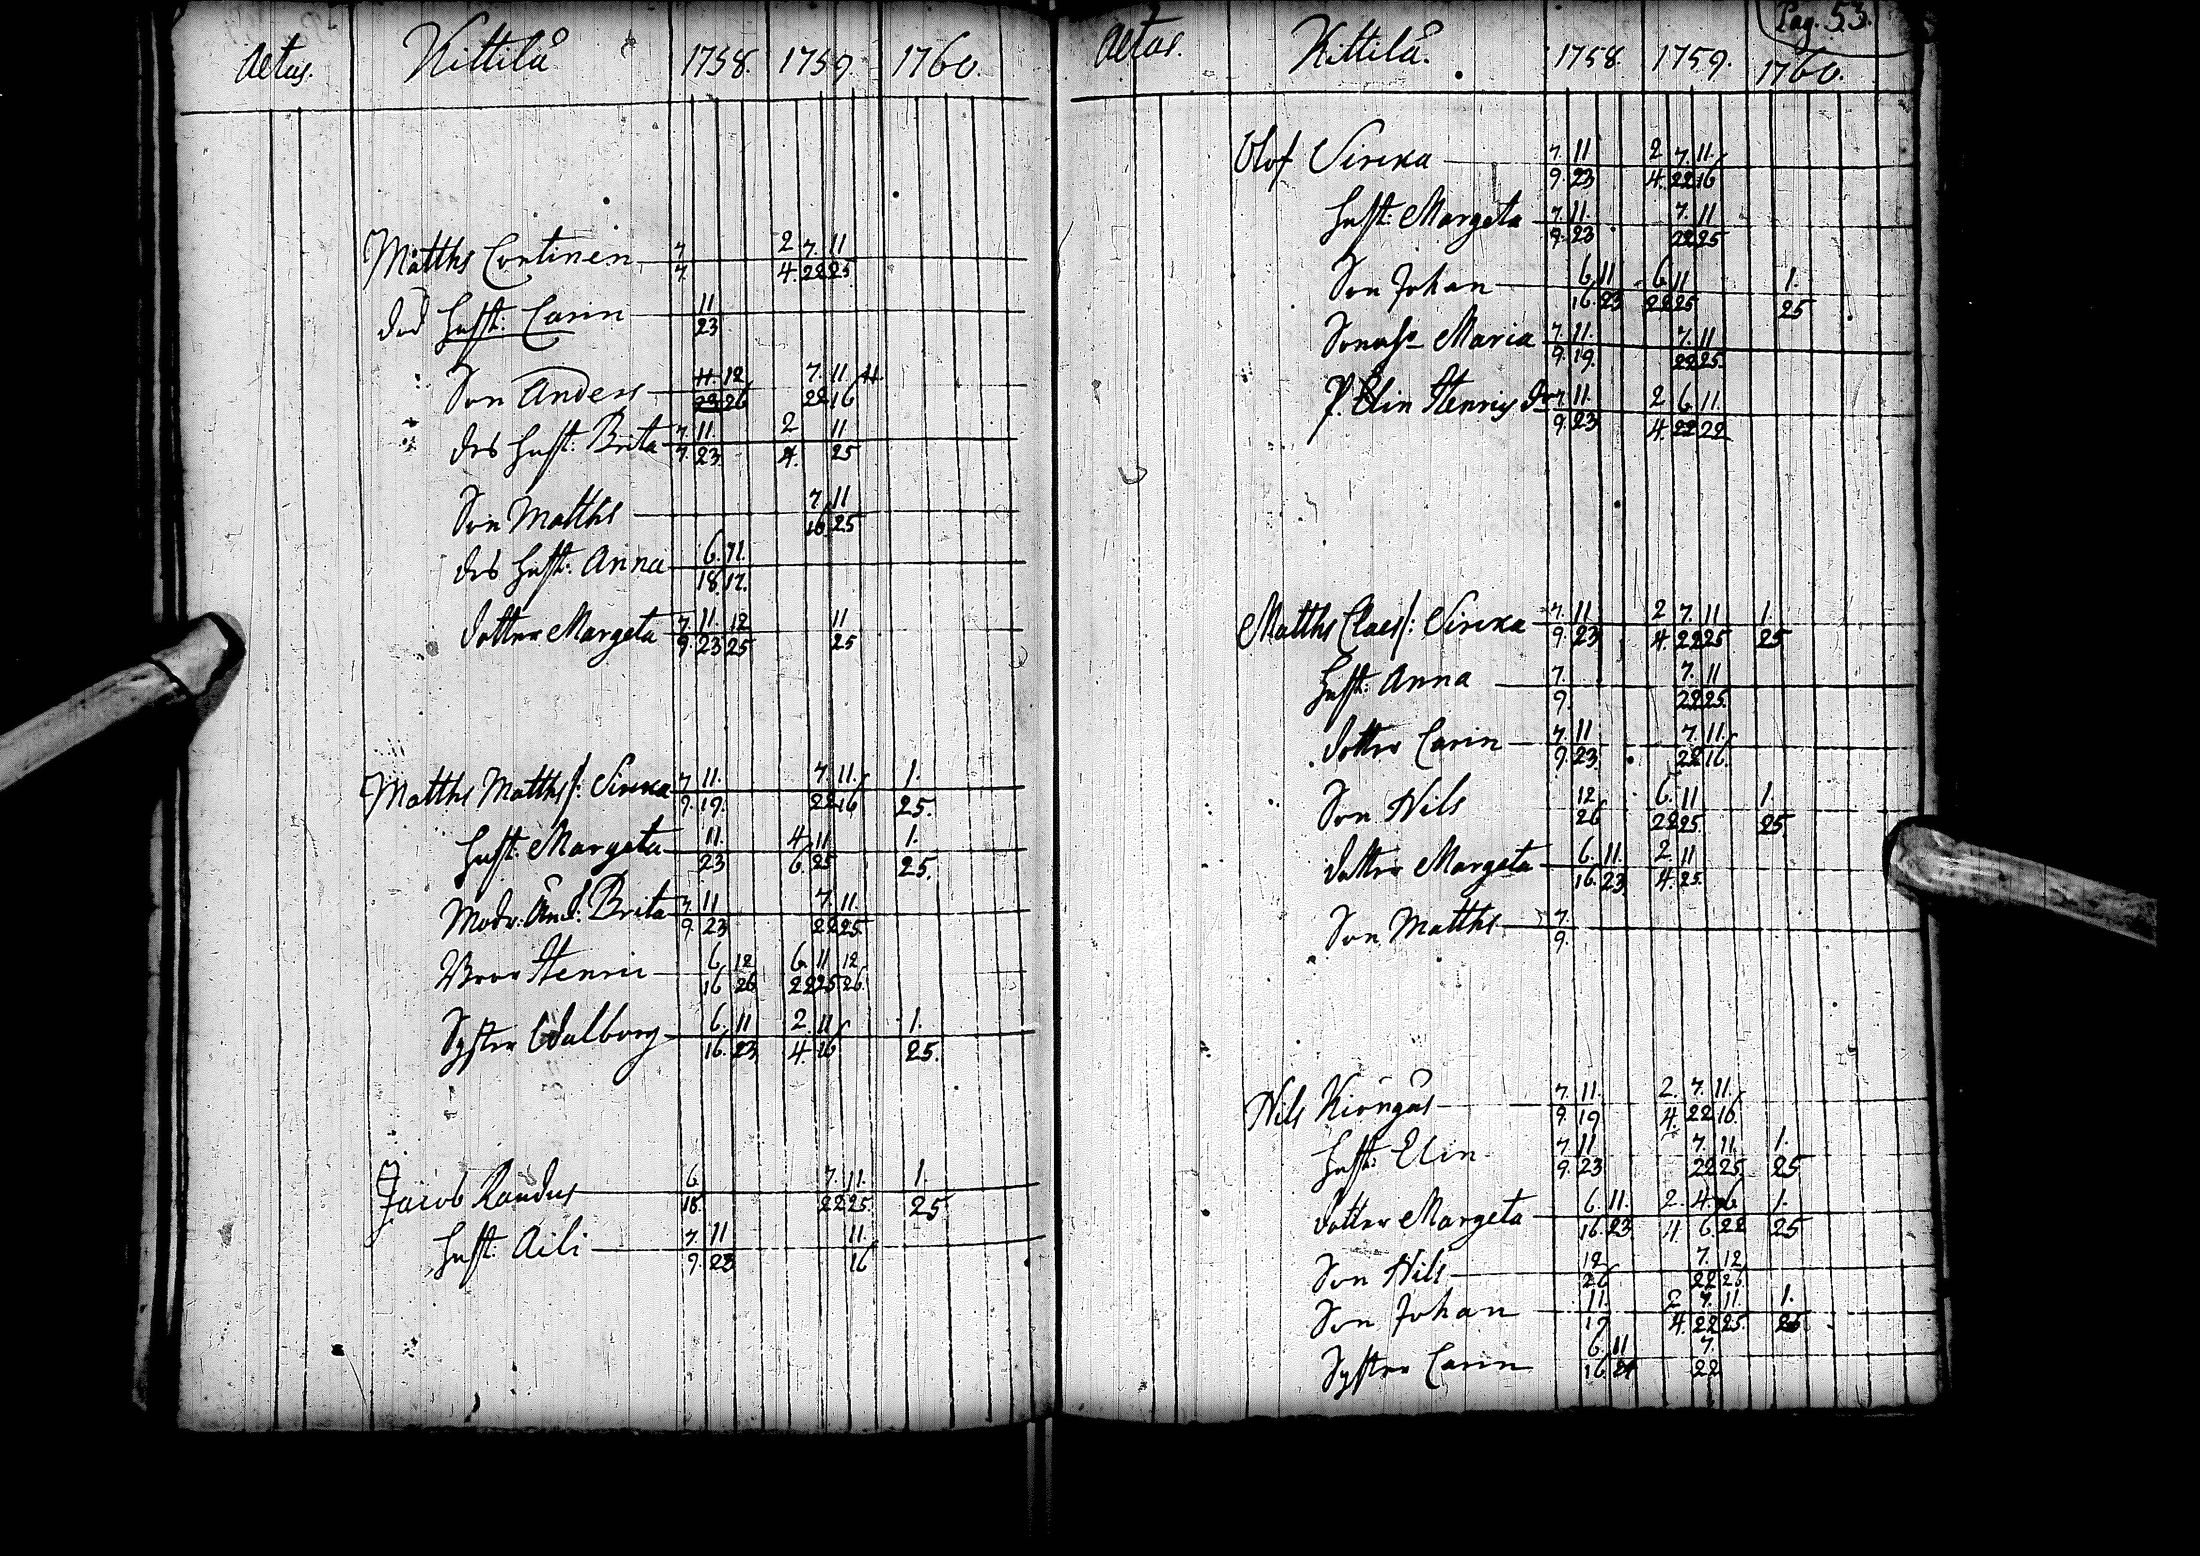 Aetas. Kittilä 1758. 1759. 1760.
Matths Continen 7/7 2/4. 7./22 11/25
död Hust: Carin 11/23
Son Anders 11./23 12/26 7./22 11/16 11
des Hust: Brita 7/9. 11/23. 2/4. 11/25
Son Matths 7/16 11/25
des Hust: Anna 6./18 11./12.
dotter Margeta 7/9. 11./23 12/25 11/25
Matths Matths/: Sirkka 7/9. 11./19. 7./22 11./16 1./25.
Hust: Margeta 11./23 4/6 11/25 1./25.
Modr: Änk: Brita 7/9. 11/23 7./22 11./25
Bror Henric 6/16 12/26 6/22 11/25 12/26
Syster Walborg 6/16. 11/23 2/4. 11/16 1./25.
Jacob Randus 6/16. 7./22 11./25. 1./25
Hust: Aili 7/9. 11/23 11./16
Pag. 53.
Aetas. Kittilä. 1758. 1759. 1760.
Olof Sirkka 7./9. 11/23 2/4. 7./22 11./16
Hust: Margeta 7/9. 11./23 7./22 11/25
Son Johan 6/16. 11/23 6/22 11/25 1./25
Sonahu Maria 7/9. 11./19. 7./22 11/25.
P. Elin Henrics dr 7/9. 11./23 2/4. 6/22 11./22
Matths Claes/: Sirkka 7/9. 11/23 2/4. 7./22 11/25 1./25
Hust: Anna 7./9. 7./22 11/25.
dotter Carin 7/9. 11/23. 7./22 11./16
Son Nils 12/26 6./22 11/25. 1/25
dotter Margeta 6./16. 11./23 2./4. 11/25.
Son Matths 7./9.
Nils Kiöngäs 7./9. 11./19 2./4. 7./22 11./16
Hust: Elin 7/9. 11/23 7./22 11./25 1./25
dotter Margeta 6./16. 11./23 2./11. 4./6. 6/22 1./25
Son Nils 12/26 7./22 12/26
Son Johan 11./19 2/4. 7./22 11./25. 1./26
Syster Carin 6/16 11/24 7./22